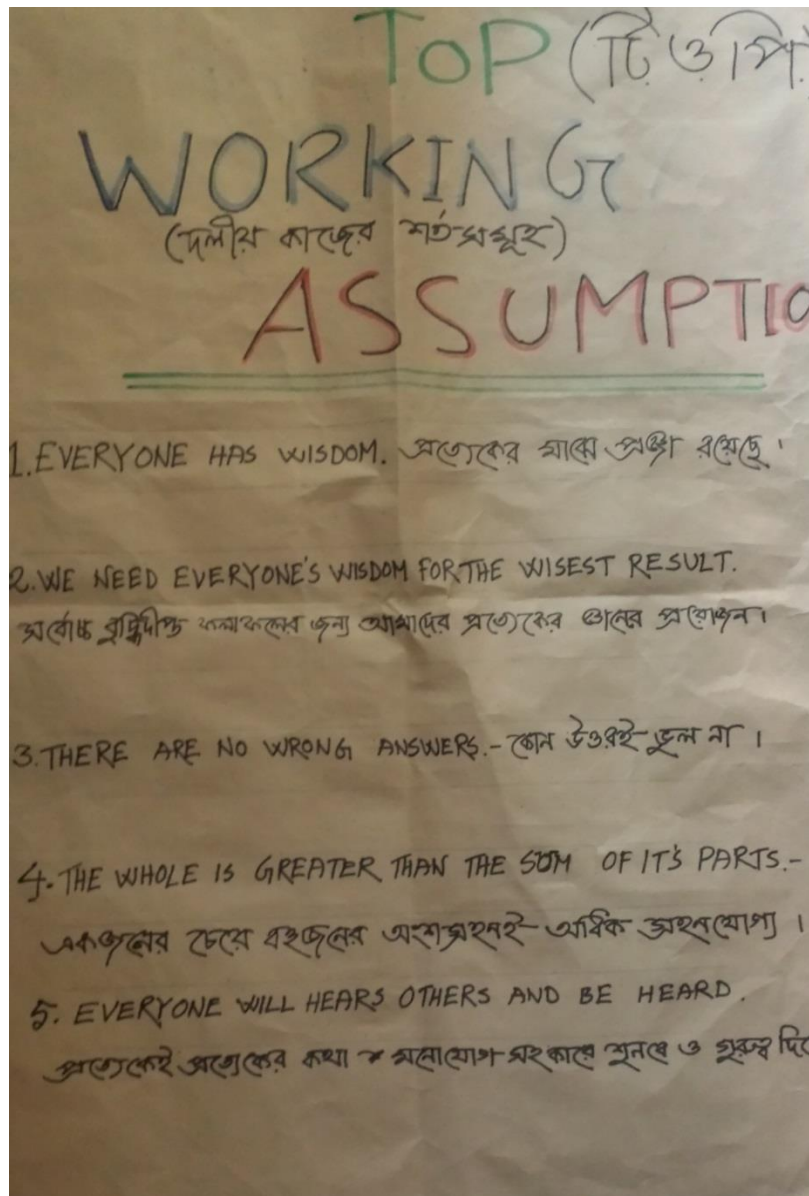 TOP (টিওপি
WORKING
(দলীয় কাজের শর্তসমূহ)
ASSUMPTIO
1. EVERYONE HAS WISDOM. প্রত্যেকের মাঝে প্রজ্ঞা রয়েছে।
2. WE NEED EVERYONE'S WISDOM FOR THE WISEST RESULT.
সর্বোচ্চ বুদ্ধিদীপ্ত ফলাফলের জন্য আমাদের প্রত্যেকের জ্ঞানের প্রয়োজন।
3. THERE ARE NO WRONG ANSWERS. - কোন উত্তরই ভুল না।
4. THE WHOLE IS GREATER THAN THE SUM OF IT'S PARTS. -
একজনের চেয়ে বহুজনের অংশগ্রহনই অধিক গ্রহনযোগ্য।
5. EVERYONE WILL HEARS OTHERS AND BE HEARD.
প্রত্যেকেই প্রত্যেকের কথা মনোযোগ সহকারে শুনবে ও গুরুত্ব দিবে